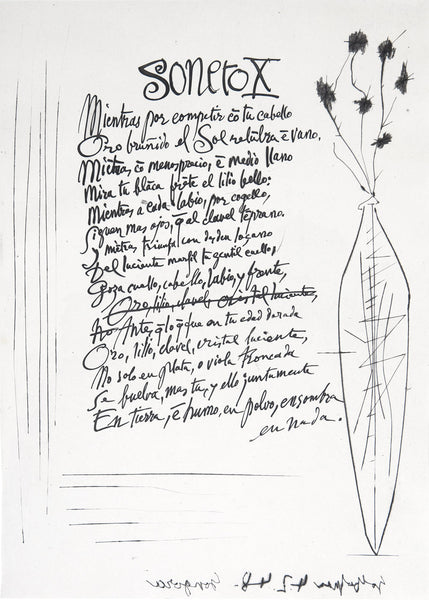 Soneto X
Mientras por competir cõ tu cabello
Oro bruñido el Sol relũbra ẽ vano,
Miẽtras cõ menosprecio, ẽ medio llano
Mira tu blãca frẽte el lilio bello:
Mientras a cada labio, por cogello,
Siguen mas ojos, q̃ al clavel tẽprano.
Y miẽtras triunfa con desden loçano
Del luciente marfil tu gentil cuello,
Goza cuello, cabello, labio, y frente,
Oro, lilio, clavel, cristal luciente,
No Antes, q̃ lo que en tu edad dorada
Oro, lilio, clavel, cristal luciente,
No solo en plata, o viola troncada
Se buelva, mas tu, y ello juntamente
En tierra, ẽ humo, en polvo, en sombra
en nada.
48. Gongora